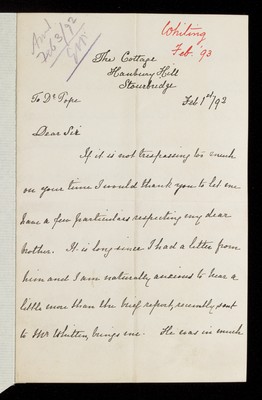 Whiting
Feb. '93
Ansd
Feb 3/92
The Cottage
Hanbury Hill
Stourbridge
To Dr Pope
Feb 1st/92
Dear Sir
If it is not trespassing too much
on your time I would thank you to let me
have a few particulars respecting my dear
brother. It is long since I had a letter from
him and I am naturally anxious to hear a
little more than the brief report, recently sent
to Mr Whitten, brings me. He was in much